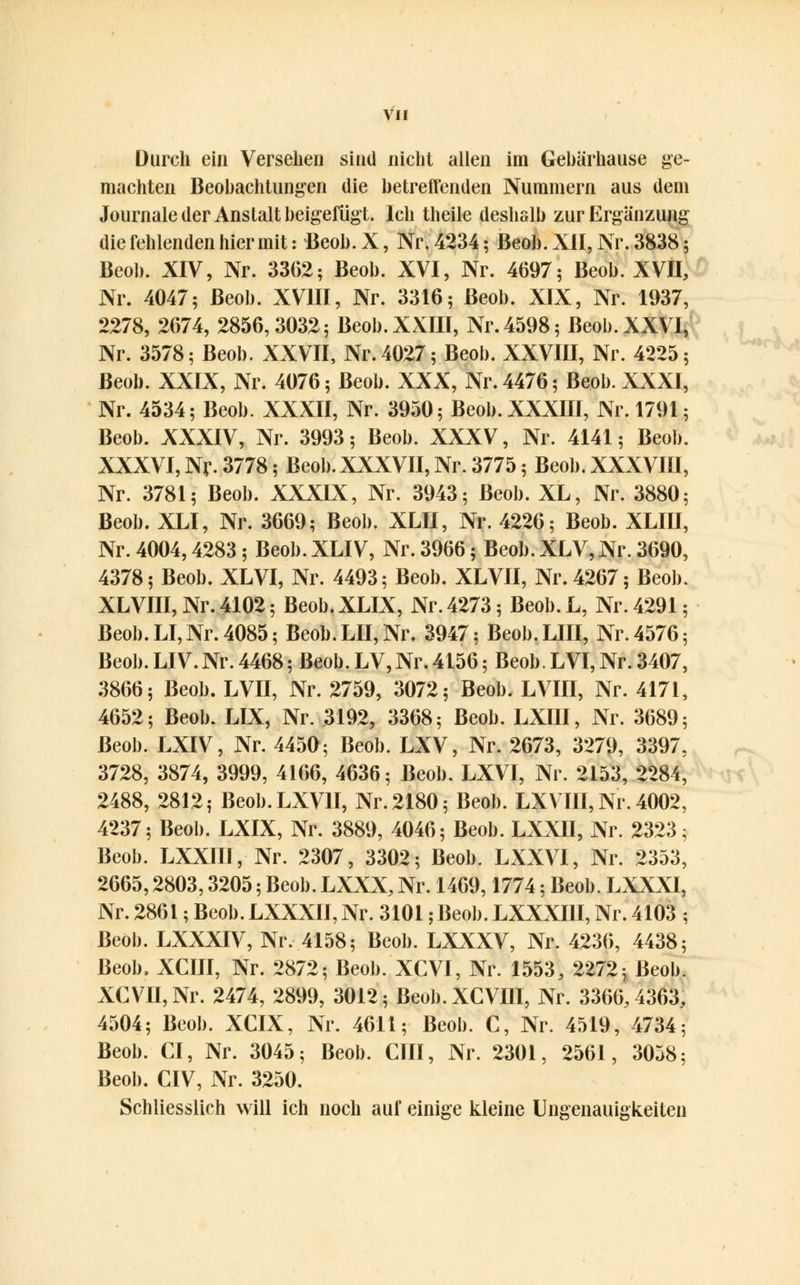 VII
Durch ein Versehen sind nicht allen im Gebärhause ge-
machten Beobachtungen die betreffenden Nummern aus dem
Journale der Anstalt beigefügt. Ich theile deshalb zur Ergänzung
die fehlenden hier mit: Beob. X, Nr. 4234; Beob. XII, Nr. 3838;
Beob. XIV, Nr. 3362; Beob. XVI, Nr. 4697; Beob. XVII,
Nr. 4047; Beob. XVIII, Nr. 3316; Beob. XIX, Nr. 1937,
2278, 2674, 2856, 3032; Beob. XXIII, Nr. 4598; Beob. XXVI,
Nr. 3578; Beob. XXVII, Nr. 4027; Beob. XXVIII, Nr. 4225;
Beob. XXIX, Nr. 4076; Beob. XXX, Nr. 4476; Beob. XXXI,
Nr. 4534; Beob. XXXII, Nr. 3950; Beob. XXXIII, Nr. 1791;
Beob. XXXIV, Nr. 3993; Beob. XXXV, Nr. 4141; Beob.
XXXVI, Nr. 3778; Beob. XXXVII, Nr. 3775; Beob. XXXVIII,
Nr. 3781; Beob. XXXIX, Nr. 3943; Beob. XL, Nr. 3880;
Beob. XLI, Nr. 3669; Beob. XLII, Nr. 4226; Beob. XLIII,
Nr. 4004, 4283; Beob. XLIV, Nr. 3966; Beob. XLV, Nr. 3690,
4378; Beob. XLVI, Nr. 4493; Beob. XLVII, Nr. 4267; Beob.
XLVIII, Nr. 4102; Beob. XLIX, Nr. 4273; Beob. L, Nr. 4291;
Beob. LI, Nr. 4085; Beob. LII, Nr. 3947; Beob. LIII, Nr. 4576;
Beob. LIV. Nr. 4468; Beob. LV, Nr. 4156; Beob. LVI, Nr. 3407,
3866; Beob. LVII, Nr. 2759, 3072; Beob. LVIII, Nr. 4171,
4652; Beob. LIX, Nr. 3192, 3368; Beob. LXIII, Nr. 3689;
Beob. LXIV, Nr. 4450; Beob. LXV, Nr. 2673, 3279, 3397,
3728, 3874, 3999, 4166, 4636; Beob. LXVI, Nr. 2153, 2284,
2488, 2812; Beob. LXVII, Nr. 2180; Beob. LXVIII, Nr. 4002,
4237; Beob. LXIX, Nr. 3889, 4046; Beob. LXXII, Nr. 2323;
Beob. LXXIII, Nr. 2307, 3302; Beob. LXXVI, Nr. 2353,
2665, 2803, 3205; Beob. LXXX, Nr. 1469, 1774; Beob. LXXXI,
Nr. 2861; Beob. LXXXII, Nr. 3101; Beob. LXXXIII, Nr. 4103;
Beob. LXXXIV, Nr. 4158; Beob. LXXXV, Nr. 4236, 4438;
Beob. XCIII, Nr. 2872; Beob. XCVI, Nr. 1553, 2272; Beob.
XCVII, Nr. 2474, 2899, 3012; Beob. XCVIII, Nr. 3366, 4363,
4504; Beob. XCIX, Nr. 4611; Beob. C, Nr. 4519, 4734;
Beob. CI, Nr. 3045; Beob. CIII, Nr. 2301, 2561, 3058;
Beob. CIV, Nr. 3250.
Schliesslich will ich noch auf einige kleine Ungenauigkeiten